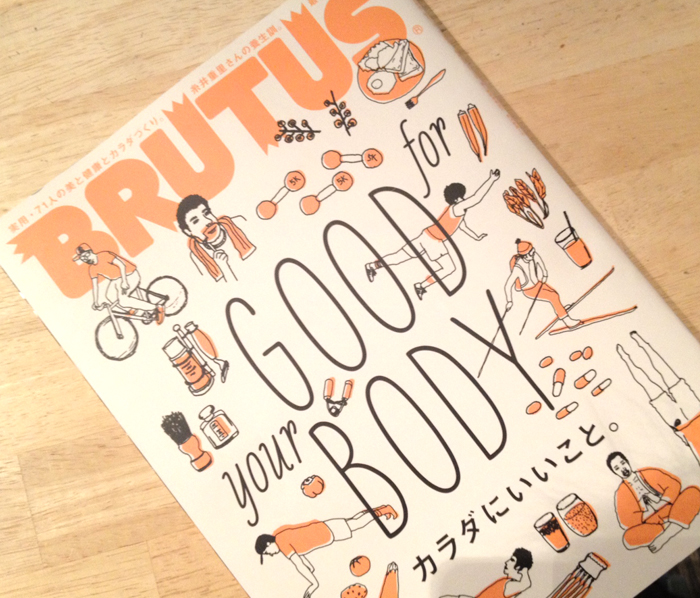 実用・71人の美と健康とカラダづくり。 糸井重里さんの養生訓。
BRUTUS®
GOOD for
your BODY
カラダにいいこと。
5K
5K
3K
3K